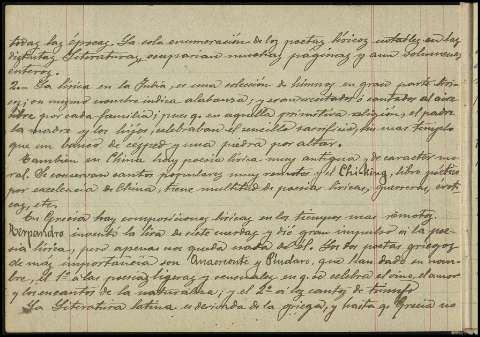 todas las épocas. La sola enumeración de los poetas líricos notables en las
distintas Literaturas ocuparían muchas páginas y aun volúmenes
enteros.
2.- La lírica en la India, es una colección de himnos en gran parte
su mismo nombre indica alabanza, y eran recitados o cantados al aire
libre por cada familia; pues q. en aquella primitiva religión, el padre
la madre y los hijos, celebraban el sencillo sacrificio, sin mas templo
que un banco de cesped y una piedra por altar.
También en China hay poesía lírica muy antigua, de caracter mo-
ral. Se conservan cantos populares muy remotos y el Chi-King, libro poético
por excelencia de China, tiene multitud de poesías líricas, guerreras, eróti-
cas, etc.
En Grecia hay composiciones líricas en los tiempos mas remotos.
Terpandro inventó la lira de siete cuerdas y dió gran impulso a la poe-
sía lírica, pero apenas nos queda nada de él. Los dos poetas griegos
de más importancia son Anacreonte y Píndaro, que han dado su nom-
bre, el 1º a las poesías ligeras y sensuales en q. se celebra el vino, el amor
y los encantos de la naturaleza; y el 2º a los cantos de triunfo
La Literatura latina es derivada de la griega, y hasta q. Grecia no